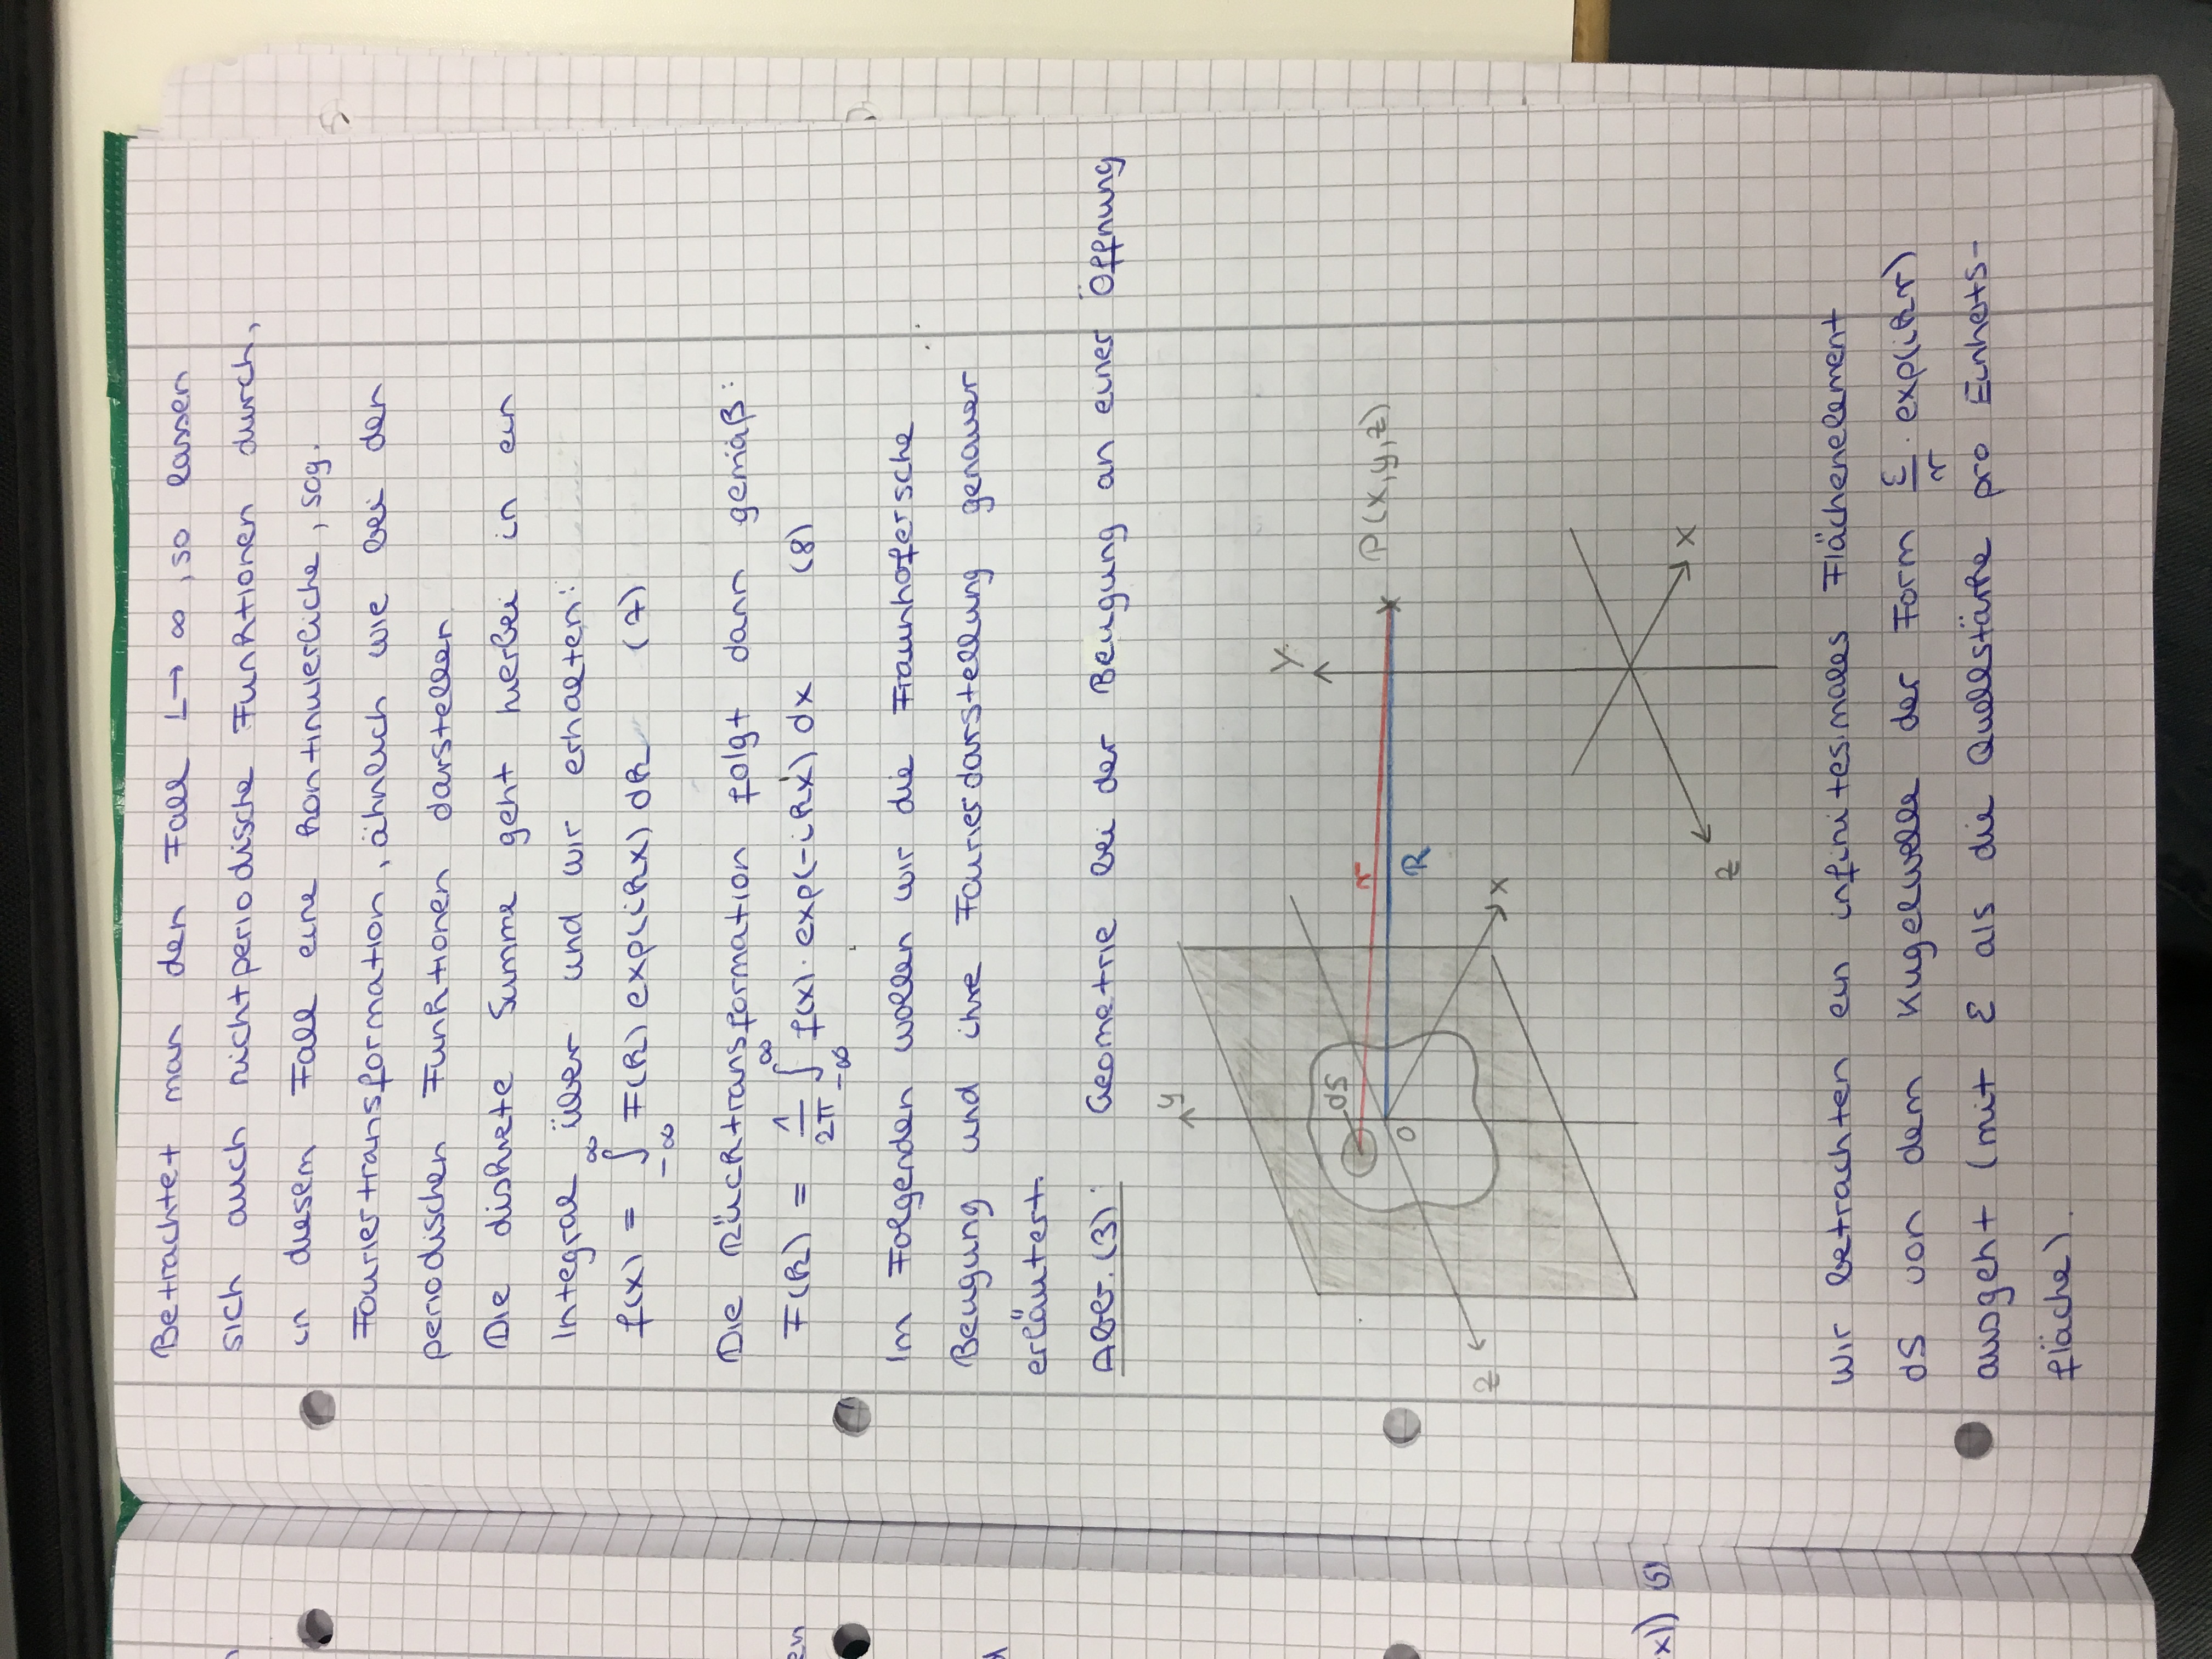 Betrachtet man den Fall L→ ∞, so lassen
sich auch nichtperiodische Funktionen durch,
in diesem Fall eine kontinuierliche, sog.
Fouriertransformation, ähnlich wie bei den
periodischen Funktionen darstellen.
Die diskrete Summe geht hierbei in ein
Integral über und wir erhalten:
f(x) = ∫_{-∞}^{∞} F(k) exp(ikx) dk (7)
Die Rücktransformation folgt dann gemäß:
F(k) = 1/2π ∫_{-∞}^{∞} f(x) · exp(-ikx) dx (8)
Im Folgenden wollen wir die Fraunhofersche
Beugung und ihre Fourierdarstellung genauer
erläutert.
Abb. (3): Geometrie bei der Beugung an einer Öffnung
y
dS
r
R
O
z
x
Y
P(x,y,z)
x
z
Wir betrachten ein infinitesimales Flächenelement
dS von dem Kugelwelle der Form ε/r · exp(ikr)
ausgeht (mit ε als die Quellstärke pro Einheits-
fläche).
en
x)) (5)